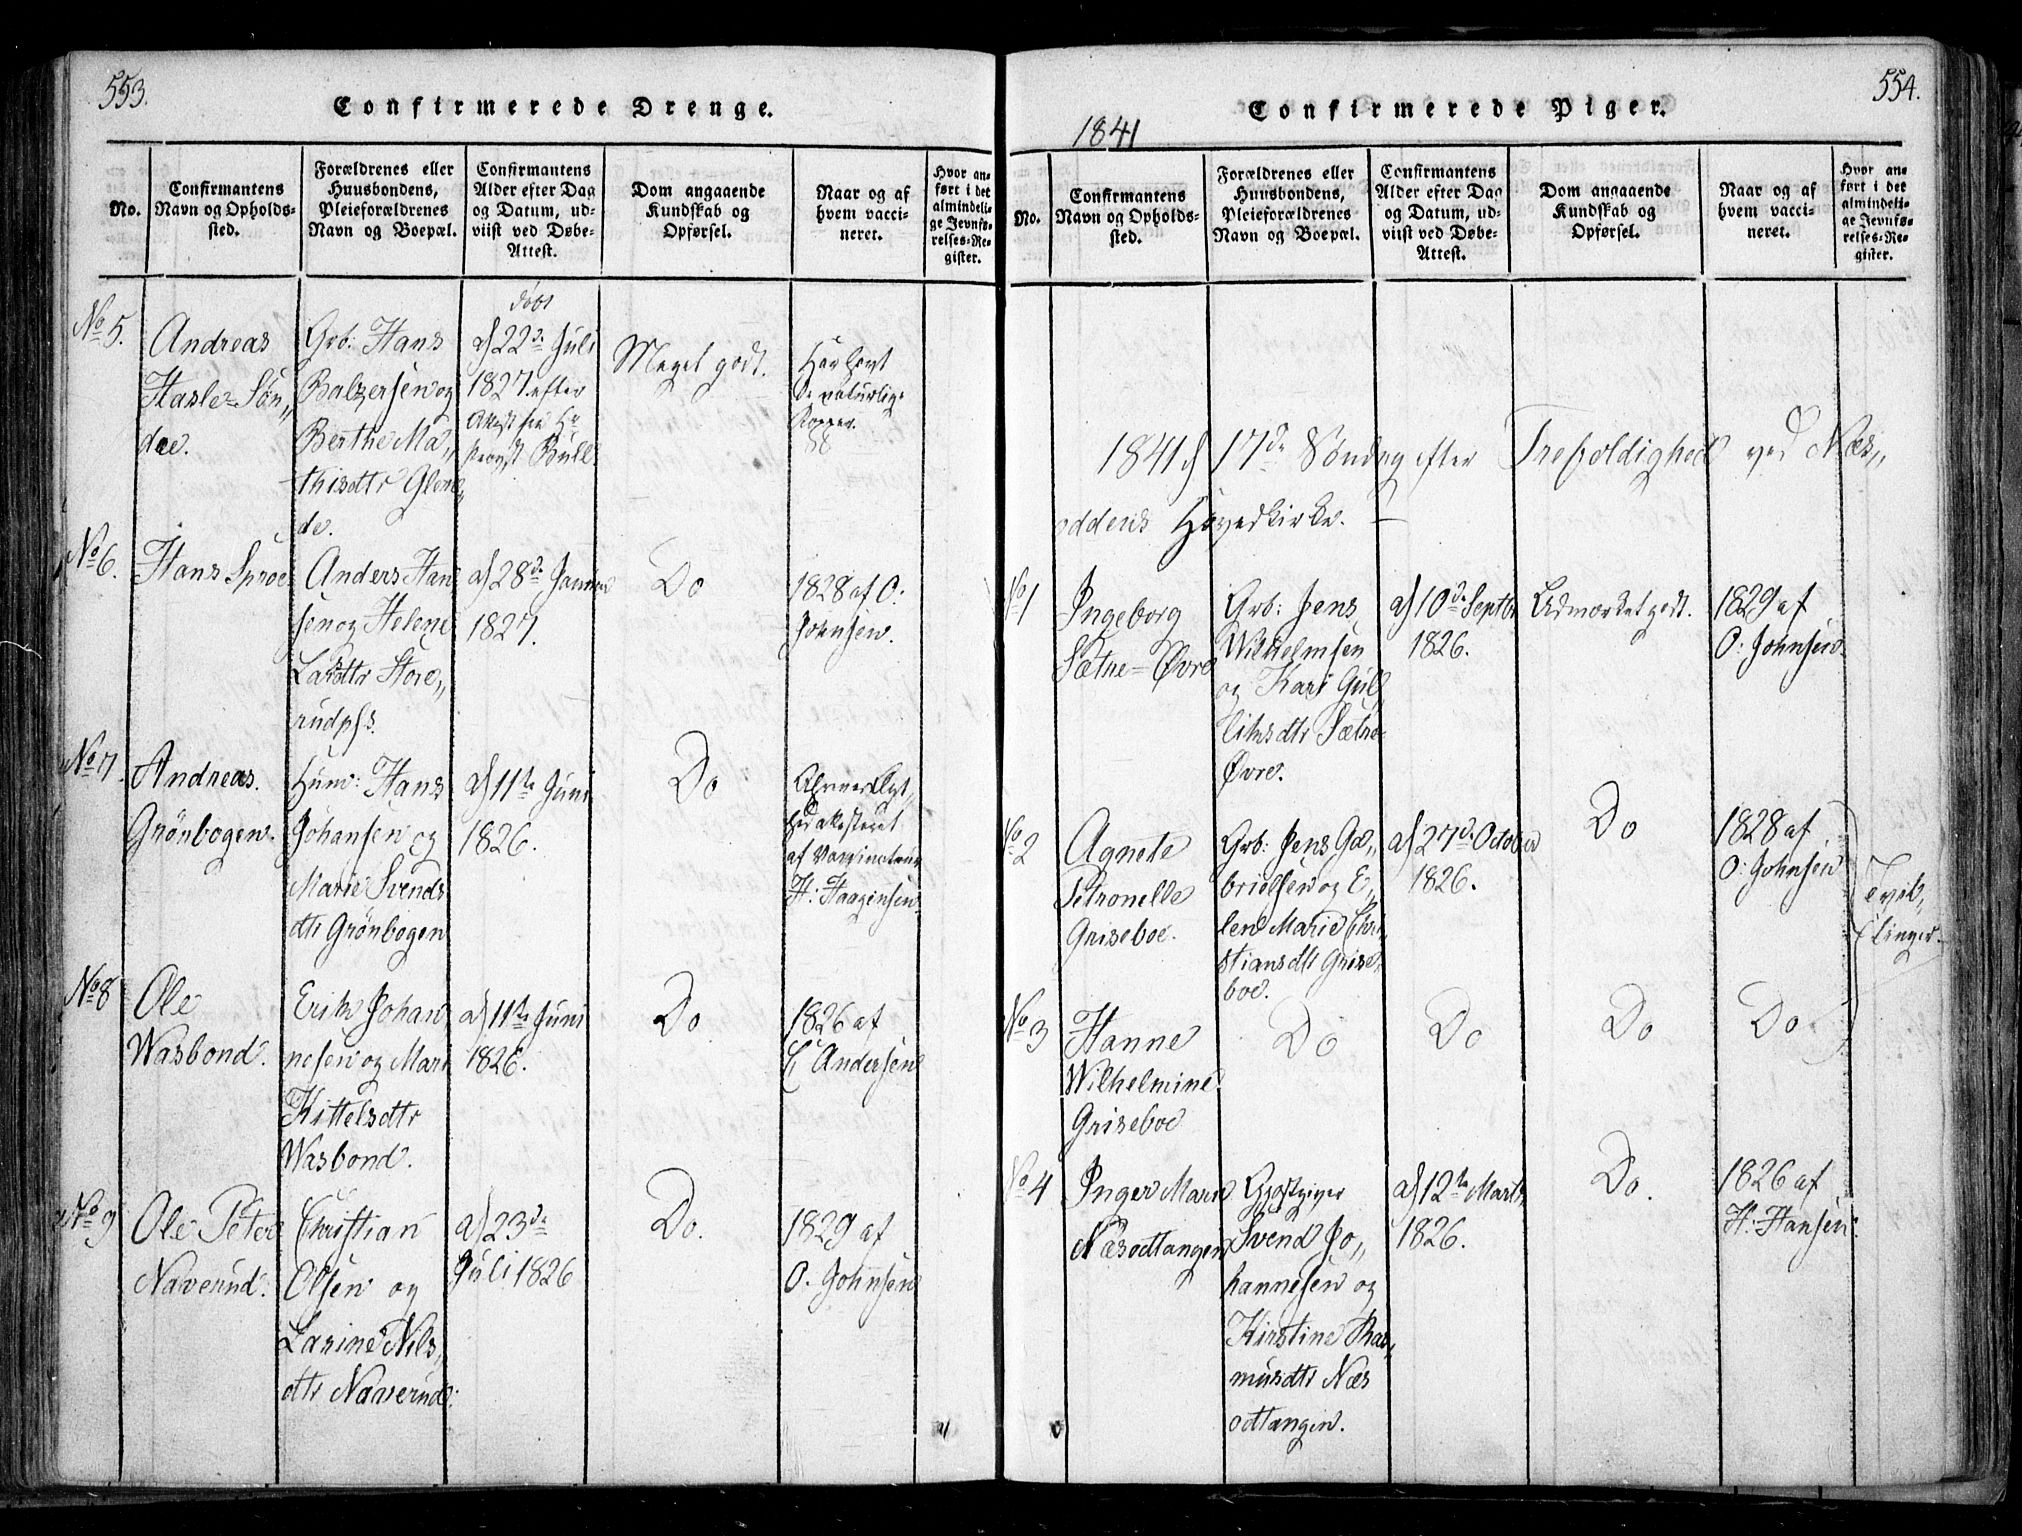 553.
Confirmerede Drenge.
No.
Confirmantens
Navn og Opholds-
sted.
Forældrenes eller
Huusbondens,
Pleieforældrenes
Navn og Boepæl.
Confirmantens
Alder efter Dag
og Datum, ud-
viist ved Døbe-
Attest.
Dom angaaende
Kundskab og
Opførsel.
Naar og af
hvem vacci-
neret.
Hvor an-
ført i det
almindeli-
ge Jevnfø-
relses-Re-
gister.
No 5.
Andreas
Hasle-Søn„
dre.
Grb: Hans
Balzersen og
Berthe Ma„
thisdtr Glen„
de.
døbt
d 22de Juli
1827 efter
Attest fra Hr
Provst Bull.
Meget godt.
Har havt
de naturlige
Kopper.
No 6.
Hans Sproe
Anders Han
sen og Helene
Larsdtr Store„
rudpls.
d 28de Januar
1827.
Do
1828 af O:
Johnsen.
No 7.
Andreas
Grönbogen.
Huusm: Hans
Johansen og
Marie Svends
dtr Grönbogen
d 11te Juni
1826.
Do
attesteret
af Vaccinateur
H: Haagensen.
No 8
Ole
Wasbond.
Erik Johan
nesen og Mari
Kittelsdtr
Wasbond.
d 11te Juni
1826.
Do
1826 af
Andersen
No 9
Ole Peter
Naverud.
Christian
Olsen og
Larine Nils„
dtr Naverud.
d 23de
Juli 1826
Do.
1829 af
O. Johnsen
554.
Confirmerede Piger.
1841
No.
Confirmantens
Navn og Opholds-
sted.
Forældrenes eller
Huusbondens,
Pleieforældrenes
Navn og Boepæl.
Confirmantens
Alder efter Dag
og Datum, ud-
viist ved Døbe-
Attest.
Dom angaaende
Kundskab og
Opførsel.
Naar og af
hvem vacci-
neret.
Hvor an-
ført i det
almindeli-
ge Jevnfø-
relses-Re-
gister.
1841 d 17de Søndag efter Trefoldighed ved Næs„
oddens Hovedkirke. —
No 1
Ingeborg
Sætre-Øvre
Grb: Jens
Wilhelmsen
og Kari Gul„
liksdtr Sætre
Øvre.
d 10de Septbr
1826.
Udmærket godt.
1829 af
O: Johnsen.
No 2
Agnete
Petronelle
Griseboe.
Grb: Jens Ga„
brielsen og E„
len Marie Chri„
stiansdtr Grise„
boe.
d 27de October
1826.
Do
1828 af
O: Johnsen
Tvil„
linger.
No 3
Hanne
Wilhelmine
Griseboe
Do
Do
Do
Do
No 4
Inger Marie
Næsodtangen
Gjæstgiver
Svend Jo„
hannesen og
Kirstine Ras„
musdtr Næs
odtangen.
d 12te Marts
1826.
Do.
1826 af
H: Hansen.